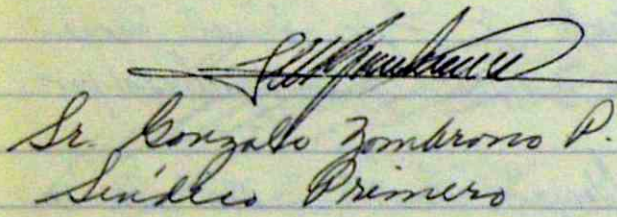 Sr. Gonzalo Zambrano P.
Síndico Primero